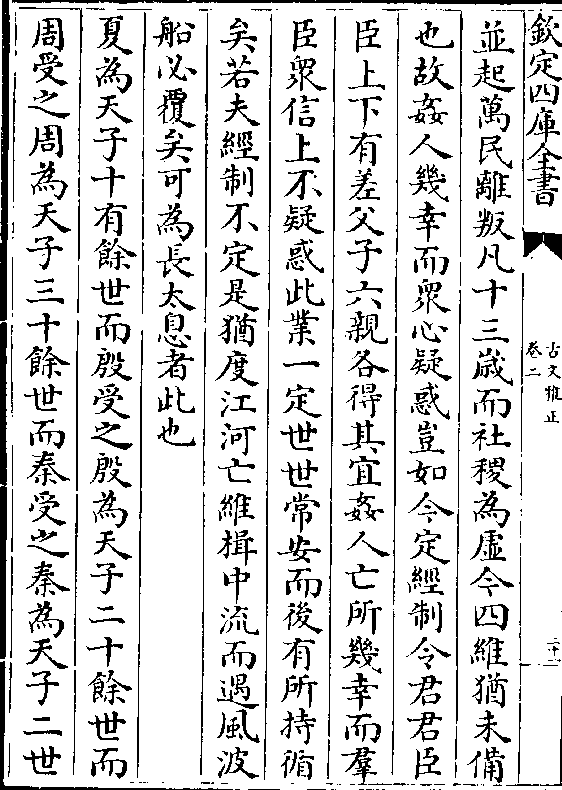 欽定四庫全書
古文雅正
卷二
二十一
並起萬民離叛凡十三歲而社稷為虛今四維猶未備
也故姦人幾幸而衆心疑惑豈如今定經制令君君臣
臣上下有差父子六親各得其宜姦人亡所幾幸而羣
臣衆信上不疑惑此業一定世世常安而後有所持循
矣若夫經制不定是猶度江河亡維楫中流而遇風波
船必覆矣可為長太息者此也
夏為天子十有餘世而殷受之殷為天子二十餘世而
周受之周為天子三十餘世而秦受之秦為天子二世